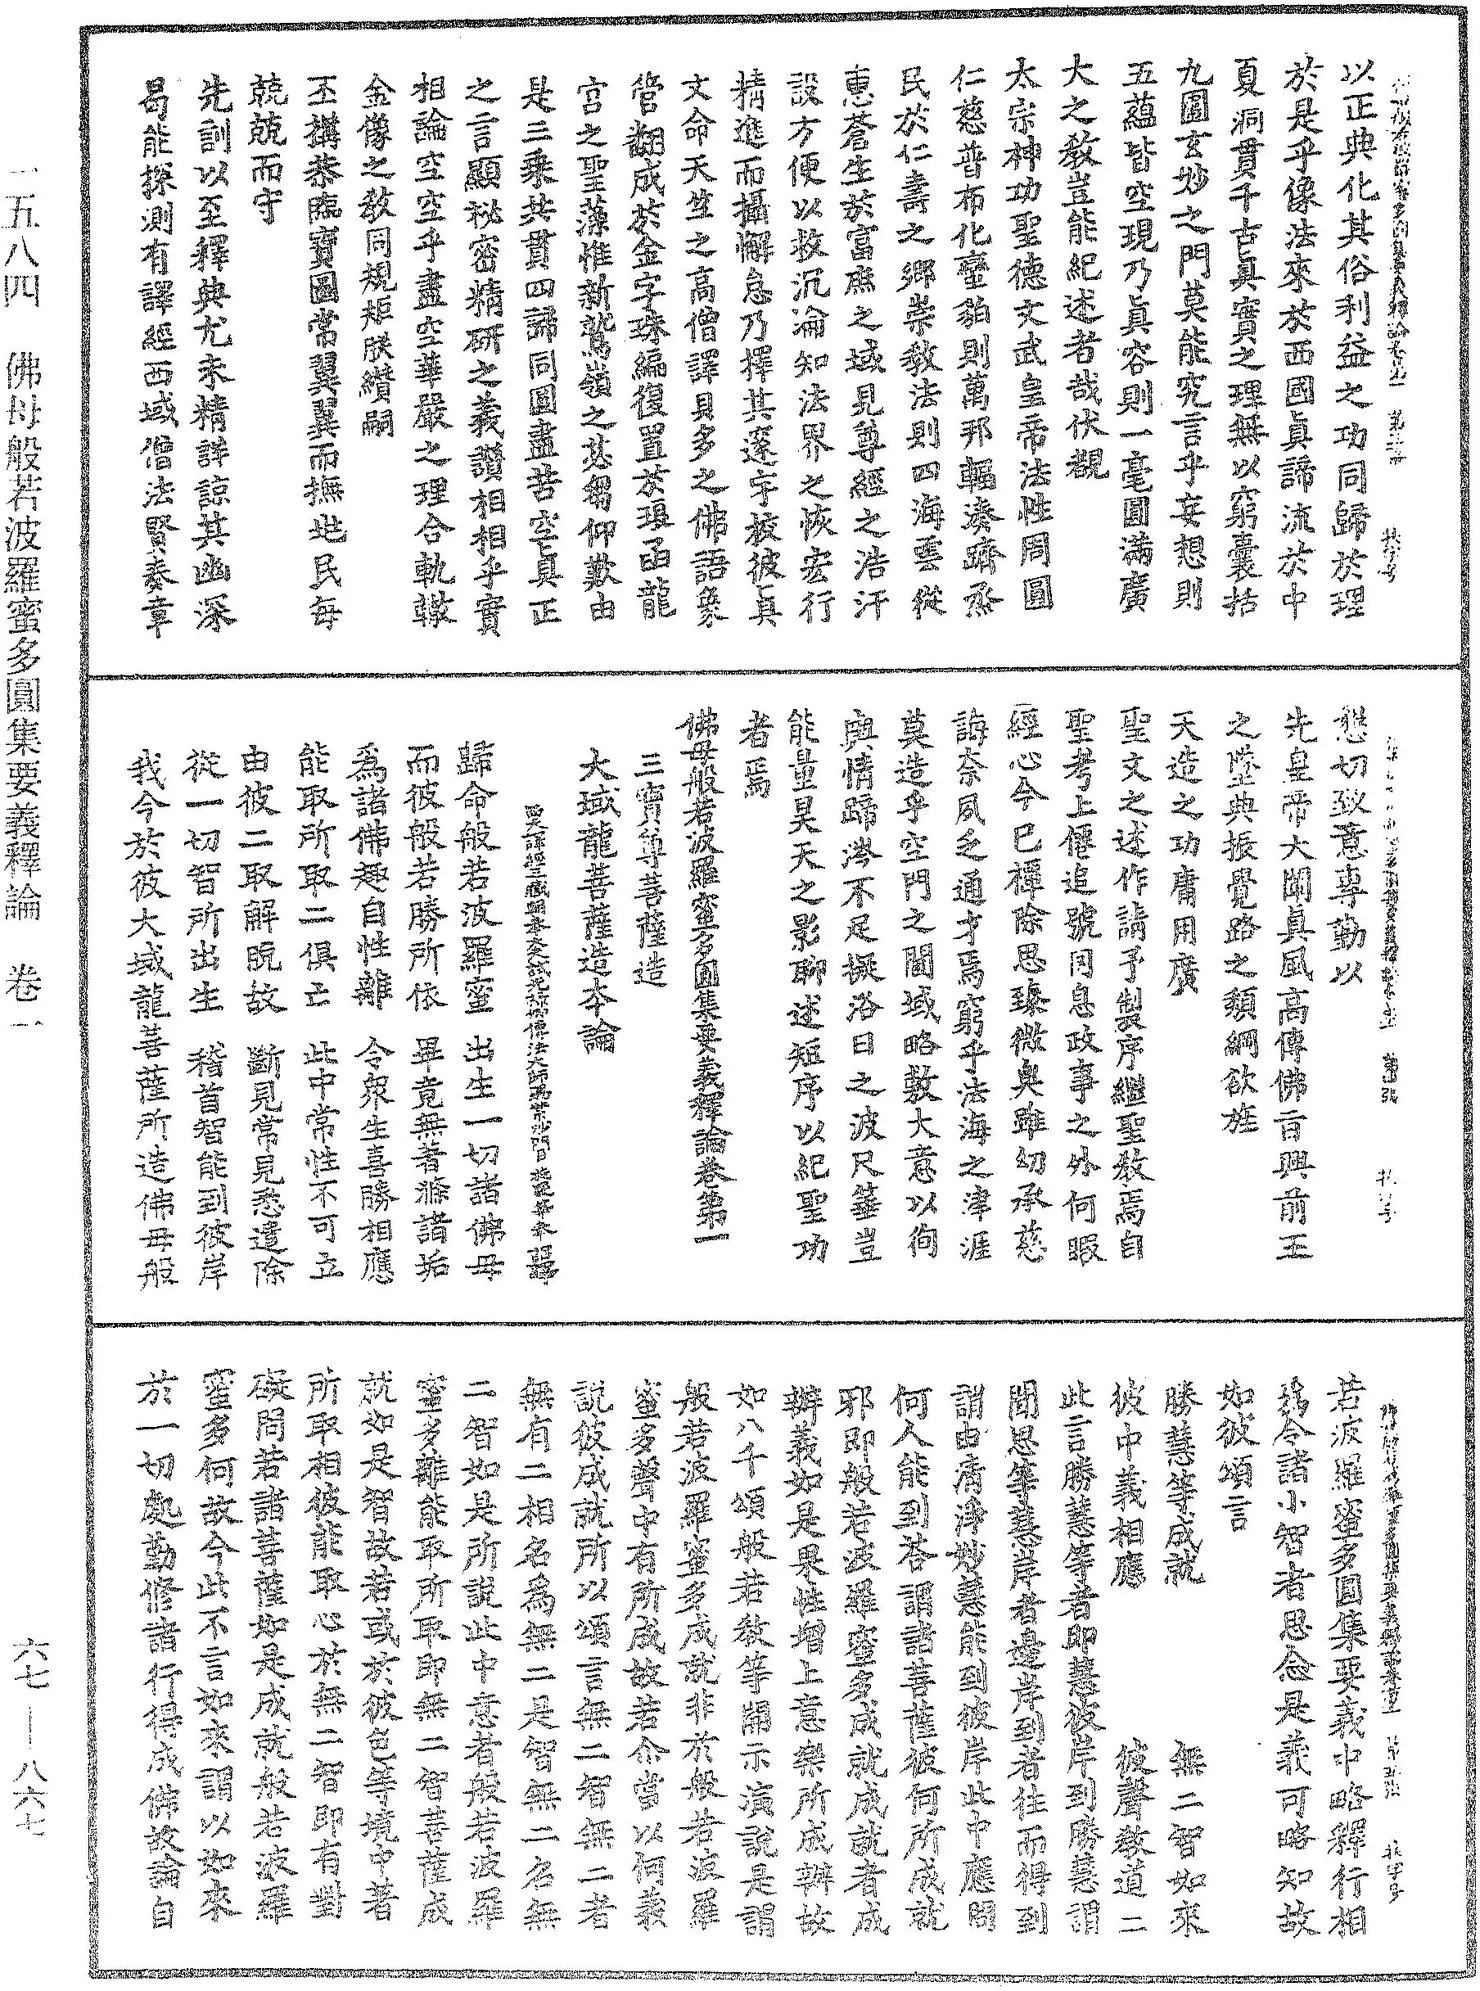 以正典化其俗利益之功同歸於理
於是乎像法來於西國真諦流於中
夏洞貫千古真實之理無以窮囊括
九圍玄妙之門莫能究言乎妄想則
五蘊皆空現乃真容則一毫圓滿廣
大之教豈能紀述者哉伏覩
太宗神功聖德文武皇帝法性周圓
仁慈普布化蠻貊則萬邦輻湊躋烝
民於仁壽之鄉崇教法則四海雲從
惠蒼生於富庶之域見尊經之浩汗
設方便以救沉淪知法界之恢宏行
精進而攝懈怠乃擇其邃宇校彼真
文命天竺之高僧譯貝多之佛語象
管翻成於金字珠編復置於琅函龍
宮之聖藻惟新鷲嶺之苾芻仰歎由
是三乘共貫四諦同圓盡苦空真正
之言顯祕密精研之義讚相相乎實
相論空空乎盡空華嚴之理合軌轍
金像之教同規矩朕纘嗣
丕搆恭臨寶圖常翼翼而撫兆民每
兢兢而守
先訓以至釋典尤未精詳諒其幽深
曷能探測有譯經西域僧法賢奏章
懇切致意專勤以
先皇帝大闡真風高傳佛旨興前王
之墜典振覺路之頹綱欲旌
天造之功庸用廣
聖文之述作請予製序繼聖教焉自
聖考上僊追號罔息政事之外何暇
經心今已禫除思臻微奧雖幼承慈
誨奈夙乏通才焉窮乎法海之津涯
莫造乎空門之閫域略敷大意以徇
輿情蹄涔不足擬浴日之波尺箠豈
能量昊天之影聊述短序以紀聖功
者焉
佛母般若波羅蜜多圓集要義釋論卷第一
三寶尊菩薩造
大域龍菩薩造本論
歸命般若波羅蜜 出生一切諸佛母
而彼般若勝所依 畢竟無著滌諸垢
為諸佛趣自性離 令眾生喜勝相應
能取所取二俱亡 此中常性不可立
由彼二取解脫故 斷見常見悉遣除
從一切智所出生 稽首智能到彼岸
我今於彼大域龍菩薩所造佛母般
若波羅蜜多圓集要義中略釋行相
為令諸小智者思念是義可略知故
如彼頌言
勝慧等成就 無二智如來
彼中義相應 彼聲教道二
此言勝慧等者即慧彼岸到勝慧謂
聞思等慧岸者邊岸到者往而得到
謂由清淨妙慧能到彼岸此中應問
何人能到答謂諸菩薩彼何所成就
邪即般若波羅蜜多成就成就者成
辦義如是果性增上意樂所成辦故
如八千頌般若教等開示演說是謂
般若波羅蜜多成就非於般若波羅
蜜多聲中有所成故若爾當以何義
說彼成就所以頌言無二智無二者
無有二相名為無二是智無二名無
二智如是所說此中意者般若波羅
蜜多離能取所取即無二智菩薩成
就如是智故若或於彼色等境中著
所取相彼能取心於無二智即有對
礙問若諸菩薩如是成就般若波羅
蜜多何故今此不言如來謂以如來
於一切處勤修諸行得成佛故論自
一五八四 佛母般若波羅蜜多圓集要義釋論 卷一
六七 — 八六七